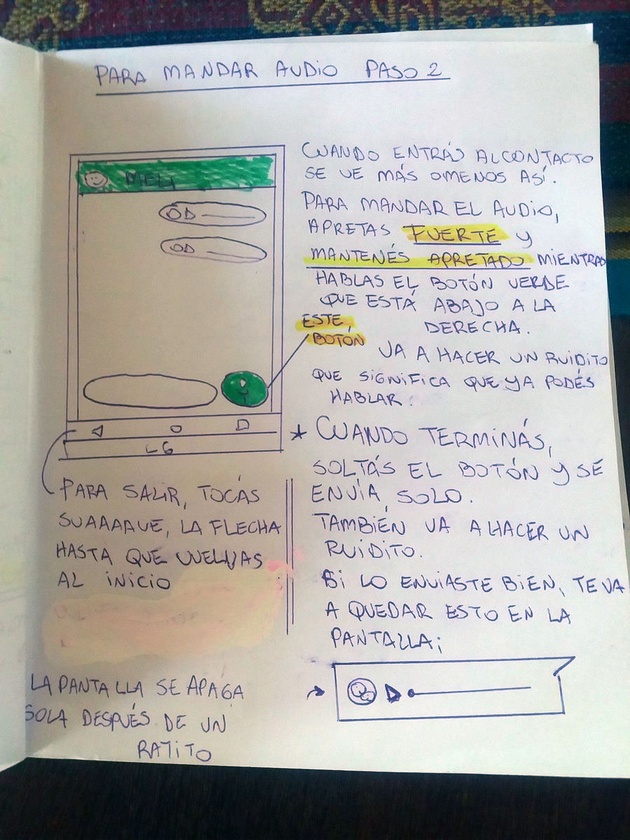 PARA MANDAR AUDIO PASO 2
MELI
LG
CUANDO ENTRÁS AL CONTACTO
SE VE MÁS O MENOS ASÍ.
PARA MANDAR EL AUDIO,
APRETAS FUERTE Y
MANTENÉS APRETADO MIENTRAS
HABLAS EL BOTÓN VERDE
QUE ESTÁ ABAJO A LA
DERECHA.
ESTE
BOTÓN
VA A HACER UN RUIDITO
QUE SIGNIFICA QUE YA PODÉS
HABLAR.
* CUANDO TERMINÁS,
SOLTÁS EL BOTÓN Y SE
ENVÍA SOLO.
TAMBIÉN VA A HACER UN
RUIDITO.
SI LO ENVIASTE BIEN, TE VA
A QUEDAR ESTO EN LA
PANTALLA:
PARA SALIR, TOCÁS
SUAAAAVE, LA FLECHA
HASTA QUE VUELVAS
AL INICIO
LA PANTALLA SE APAGA
SOLA DESPUÉS DE UN
RATITO